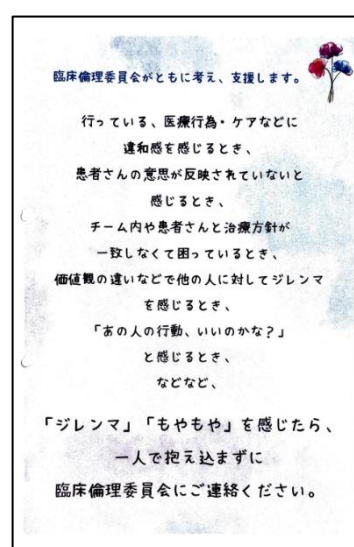 臨床倫理委員会がともに考え、支援します。
行っている、医療行為・ケアなどに
違和感を感じるとき、
患者さんの意思が反映されていないと
感じるとき、
チーム内や患者さんと治療方針が
一致しなくて困っているとき、
価値観の違いなどで他の人に対してジレンマ
を感じるとき、
「あの人の行動、いいのかな？」
と感じるとき、
などなど、
「ジレンマ」「もやもや」を感じたら、
一人で抱え込まずに
臨床倫理委員会にご連絡ください。